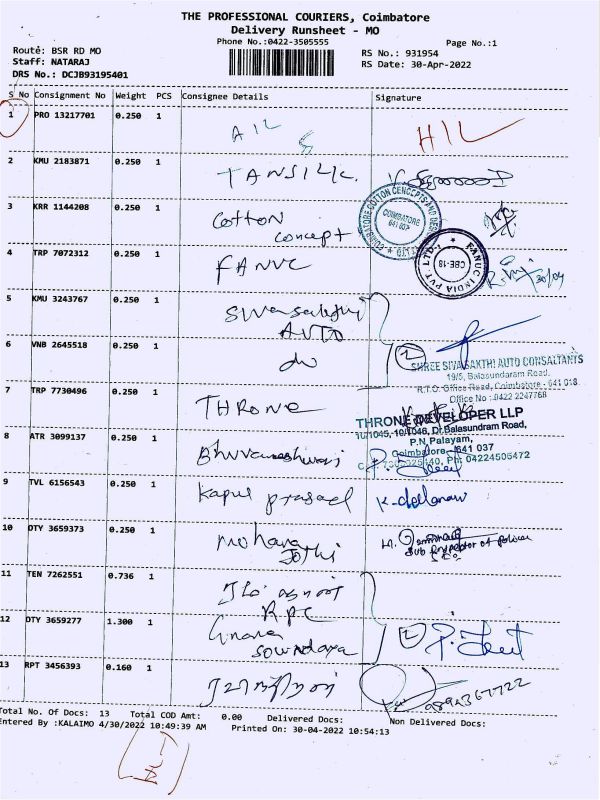 THE PROFESSIONAL COURIERS, Coimbatore
Delivery Runsheet - MO
Phone No.:0422-3505555
Page No.:1
Route: BSR RD MO
Staff: NATARAJ
DRS No.: DCJB93195401
RS No.: 931954
RS Date: 30-Apr-2022
S No Consignment No Weight PCS Consignee Details Signature
1 PRO 13217701 0.250 1 HIL
2 KMU 2183871 0.250 1 TANSILK.
3 KRR 1144208 0.250 1 Cotton
concept
COIMBATORE
641 037
4 TRP 7072312 0.250 1 FANUC 30/04
FANUC INDIA PVT. LTD.,
CBE-18
5 KMU 3243767 0.250 1 Sivasakthi
AUTO
6 VNB 2645518 0.250 1 do 2
SHREE SIVA SAKTHI AUTO CONSALTANTS
19/5, Balasundaram Road,
R.T.O. Office Road, Coimbatore - 641 018
Office No : 0422 2247768
7 TRP 7730496 0.250 1 THRONE
THRONE DEVELOPER LLP
10/1045, 10/1046, Dr.Balasundram Road,
P.N.Palayam,
Coimbatore - 641 037
Ph: 04224506472
8 ATR 3099137 0.250 1 Bhuvaneshwari
9 TVL 6156543 0.250 1 Kapil prasad
10 DTY 3659373 0.250 1 Mohana
Jothi
Sub Inspector of Police
11 TEN 7262551 0.736 1
RPC
12 DTY 3659277 1.300 1 Gnana
Sowndara 2
13 RPT 3456393 0.160 1
Total No. Of Docs: 13 Total COD Amt: 0.00 Delivered Docs: Non Delivered Docs:
Entered By :KALAIMO 4/30/2022 10:49:39 AM Printed On: 30-04-2022 10:54:13